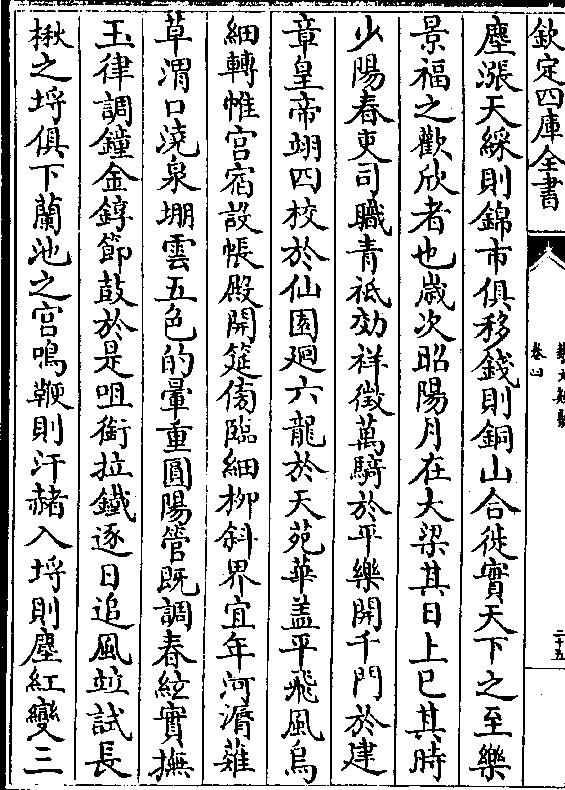 欽定四庫全書
卷四
二十五
塵漲天綵則錦市俱移錢則銅山合徙實天下之至樂
景福之歡欣者也歲次昭陽月在大梁其日上巳其時
少陽春吏司職青祗効祥徴萬騎於平樂開千門於建
章皇帝翊四校於仙園廻六龍於天苑華盖平飛風烏
細轉惟宫宿設帳殿開筵傍臨細栁斜界宜年河漘薙
草渭口澆泉堋雲五色的暈重圓陽管既調春絃實撫
玉律調鐘金錞節鼓於是咀銜拉鐵逐日追風竝試長
楸之埒俱下蘭池之宫鳴鞭則汗赭入埒則塵紅變三